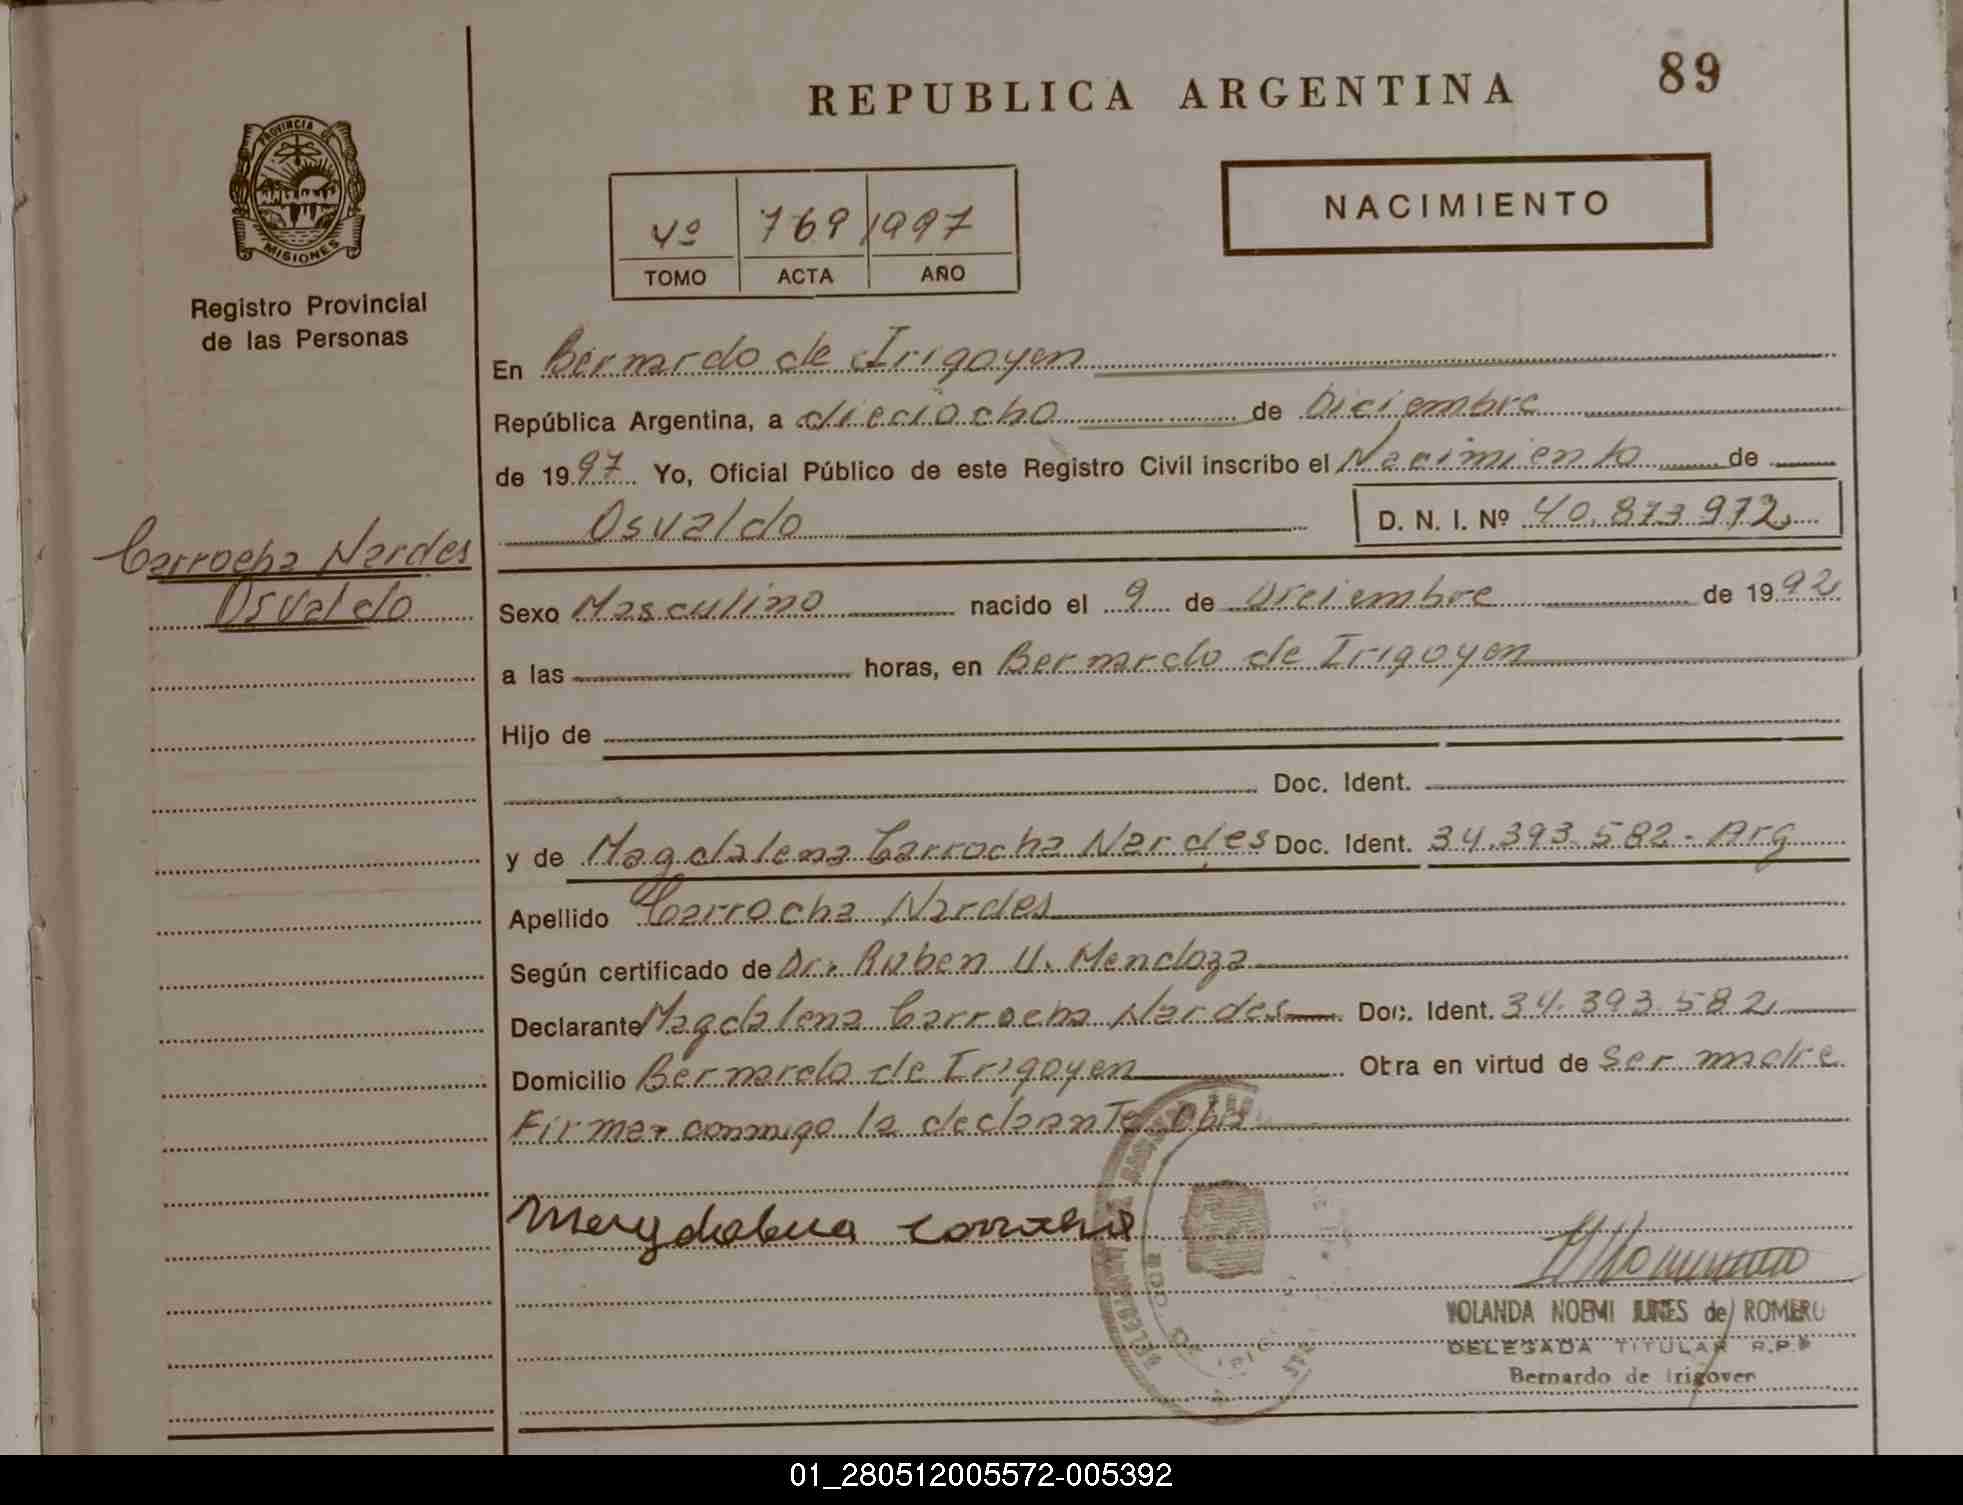 REPUBLICA ARGENTINA
89
PROVINCIA DE
MISIONES
Registro Provincial
de las Personas
4º 769 1997
TOMO ACTA AÑO
NACIMIENTO
En Bernardo de Irigoyen
República Argentina, a dieciocho de Diciembre
de 1997 Yo, Oficial Público de este Registro Civil inscribo el Nacimiento de
Osvaldo D. N. I. Nº 40.873.972
Carrocha Nardes
Osvaldo
Sexo Masculino nacido el 9 de Diciembre de 1992
a las horas, en Bernardo de Irigoyen
Hijo de
Doc. Ident.
y de Magdalena Carrocha Nardes Doc. Ident. 34.393.582 - Arg
Apellido Carrocha Nardes
Según certificado de Dr. Ruben U. Mendoza
Declarante Magdalena Carrocha Nardes Doc. Ident. 34.393.582
Domicilio Bernardo de Irigoyen Obra en virtud de Ser madre
Firmar conmigo la declarante
Magdalena
YOLANDA NOEMI de ROMERO
DELEGADA TITULAR R.P.P
Bernardo de Irigoyen
01_280512005572-005392